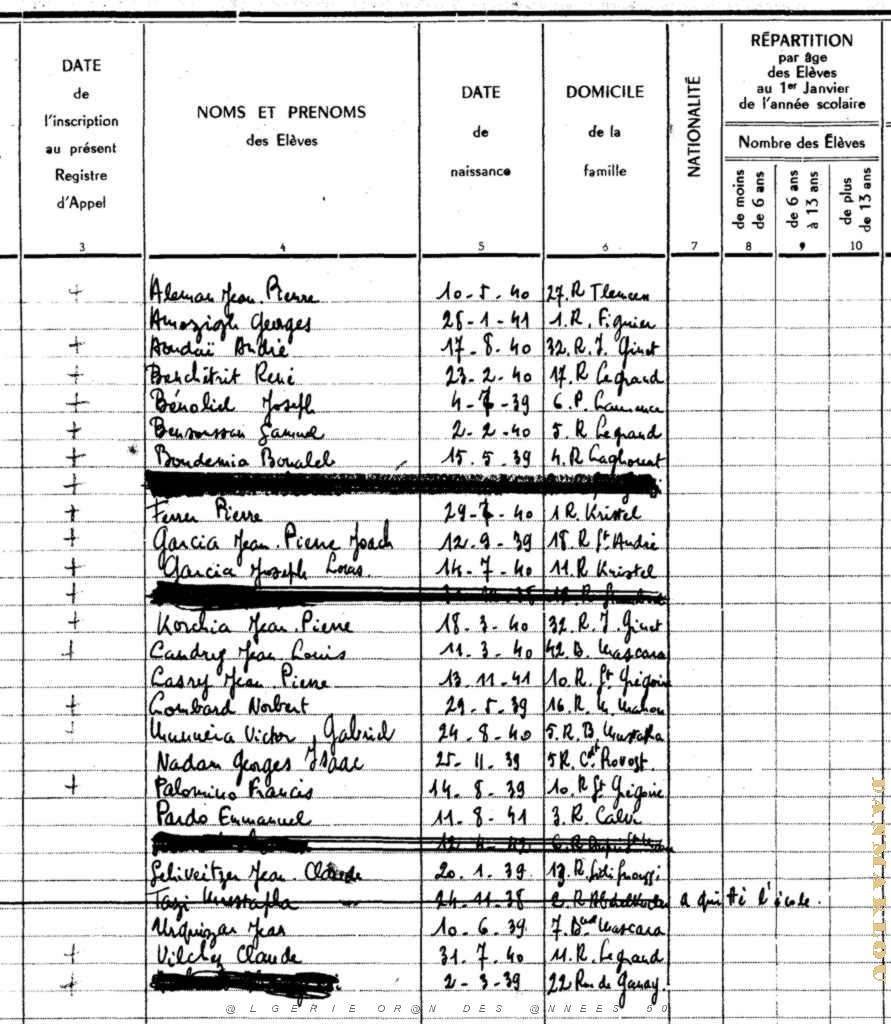 DATE de l'inscription au présent Registre d'Appel
NOMS ET PRENOMS des Elèves
DATE de naissance
DOMICILE de la famille
NATIONALITÉ
RÉPARTITION
par âge
des Elèves
au 1er Janvier
de l'année scolaire
Nombre des Élèves
de moins de 6 ans
de 6 ans à 13 ans
de plus de 13 ans
3 4 5 6 7 8 9 10
+ Aleman Jean. Pierre 10-5-40 27. R Tlemcen
Amozigh Georges 28-1-41 1. R. Figuier
+ Aoudaï André 17-8-40 32. R. J. Ginet
+ Benchétrit René 23-2-40 17. R Legrand
+ Bénoliel Joseph 4-7-39 6. P.
+ Benssoussan Samuel 2-2-40 5. R Legrand
+ Boudemia Boualeb 15.5.39 4. R Laghouat
+
+ Ferrer Pierre 29-7-40 1 R. Kristel
+ Garcia Jean. Pierre Joach 12.9-39 18. R St André
+ Garcia Joseph Louis. 14-7-40 11. R Kristel
+
+ Korchia Jean. Pierre 18-3-40 32. R. J. Ginet
+ Candry Jean. Louis 11.3-40 42. B. Mascara
Casrey Jean Pierre 13.11-41 10. R. St Grégoire
+ Lombard Norbert 29-5-39 16. R. M. Mahon
Victor, Gabriel 24-8-40 5. R. B. Mustapha
Nadam Georges Isaac 25-11-39 5 R. Ct Provost.
+ Palomino Francis 14-8-39 10. R St Grégoire
Pardo Emmanuel 11-8-41 3. R. Calvi
12-4-42
Jean. Claude 20.1.39 13. R. Sidi
Tazi Mustapha 24-11-38 2. R Abdelkader a quitté l'école.
Urquizar Jean 10-6.39 7. Bd Mascara
+ Vilchez Claude 31.7.40 11. R. Legrand
+ 2-3-39 22 Rue de Ganay.
DANMARLOU
@LGERIE OR@N DES @NNEES 50